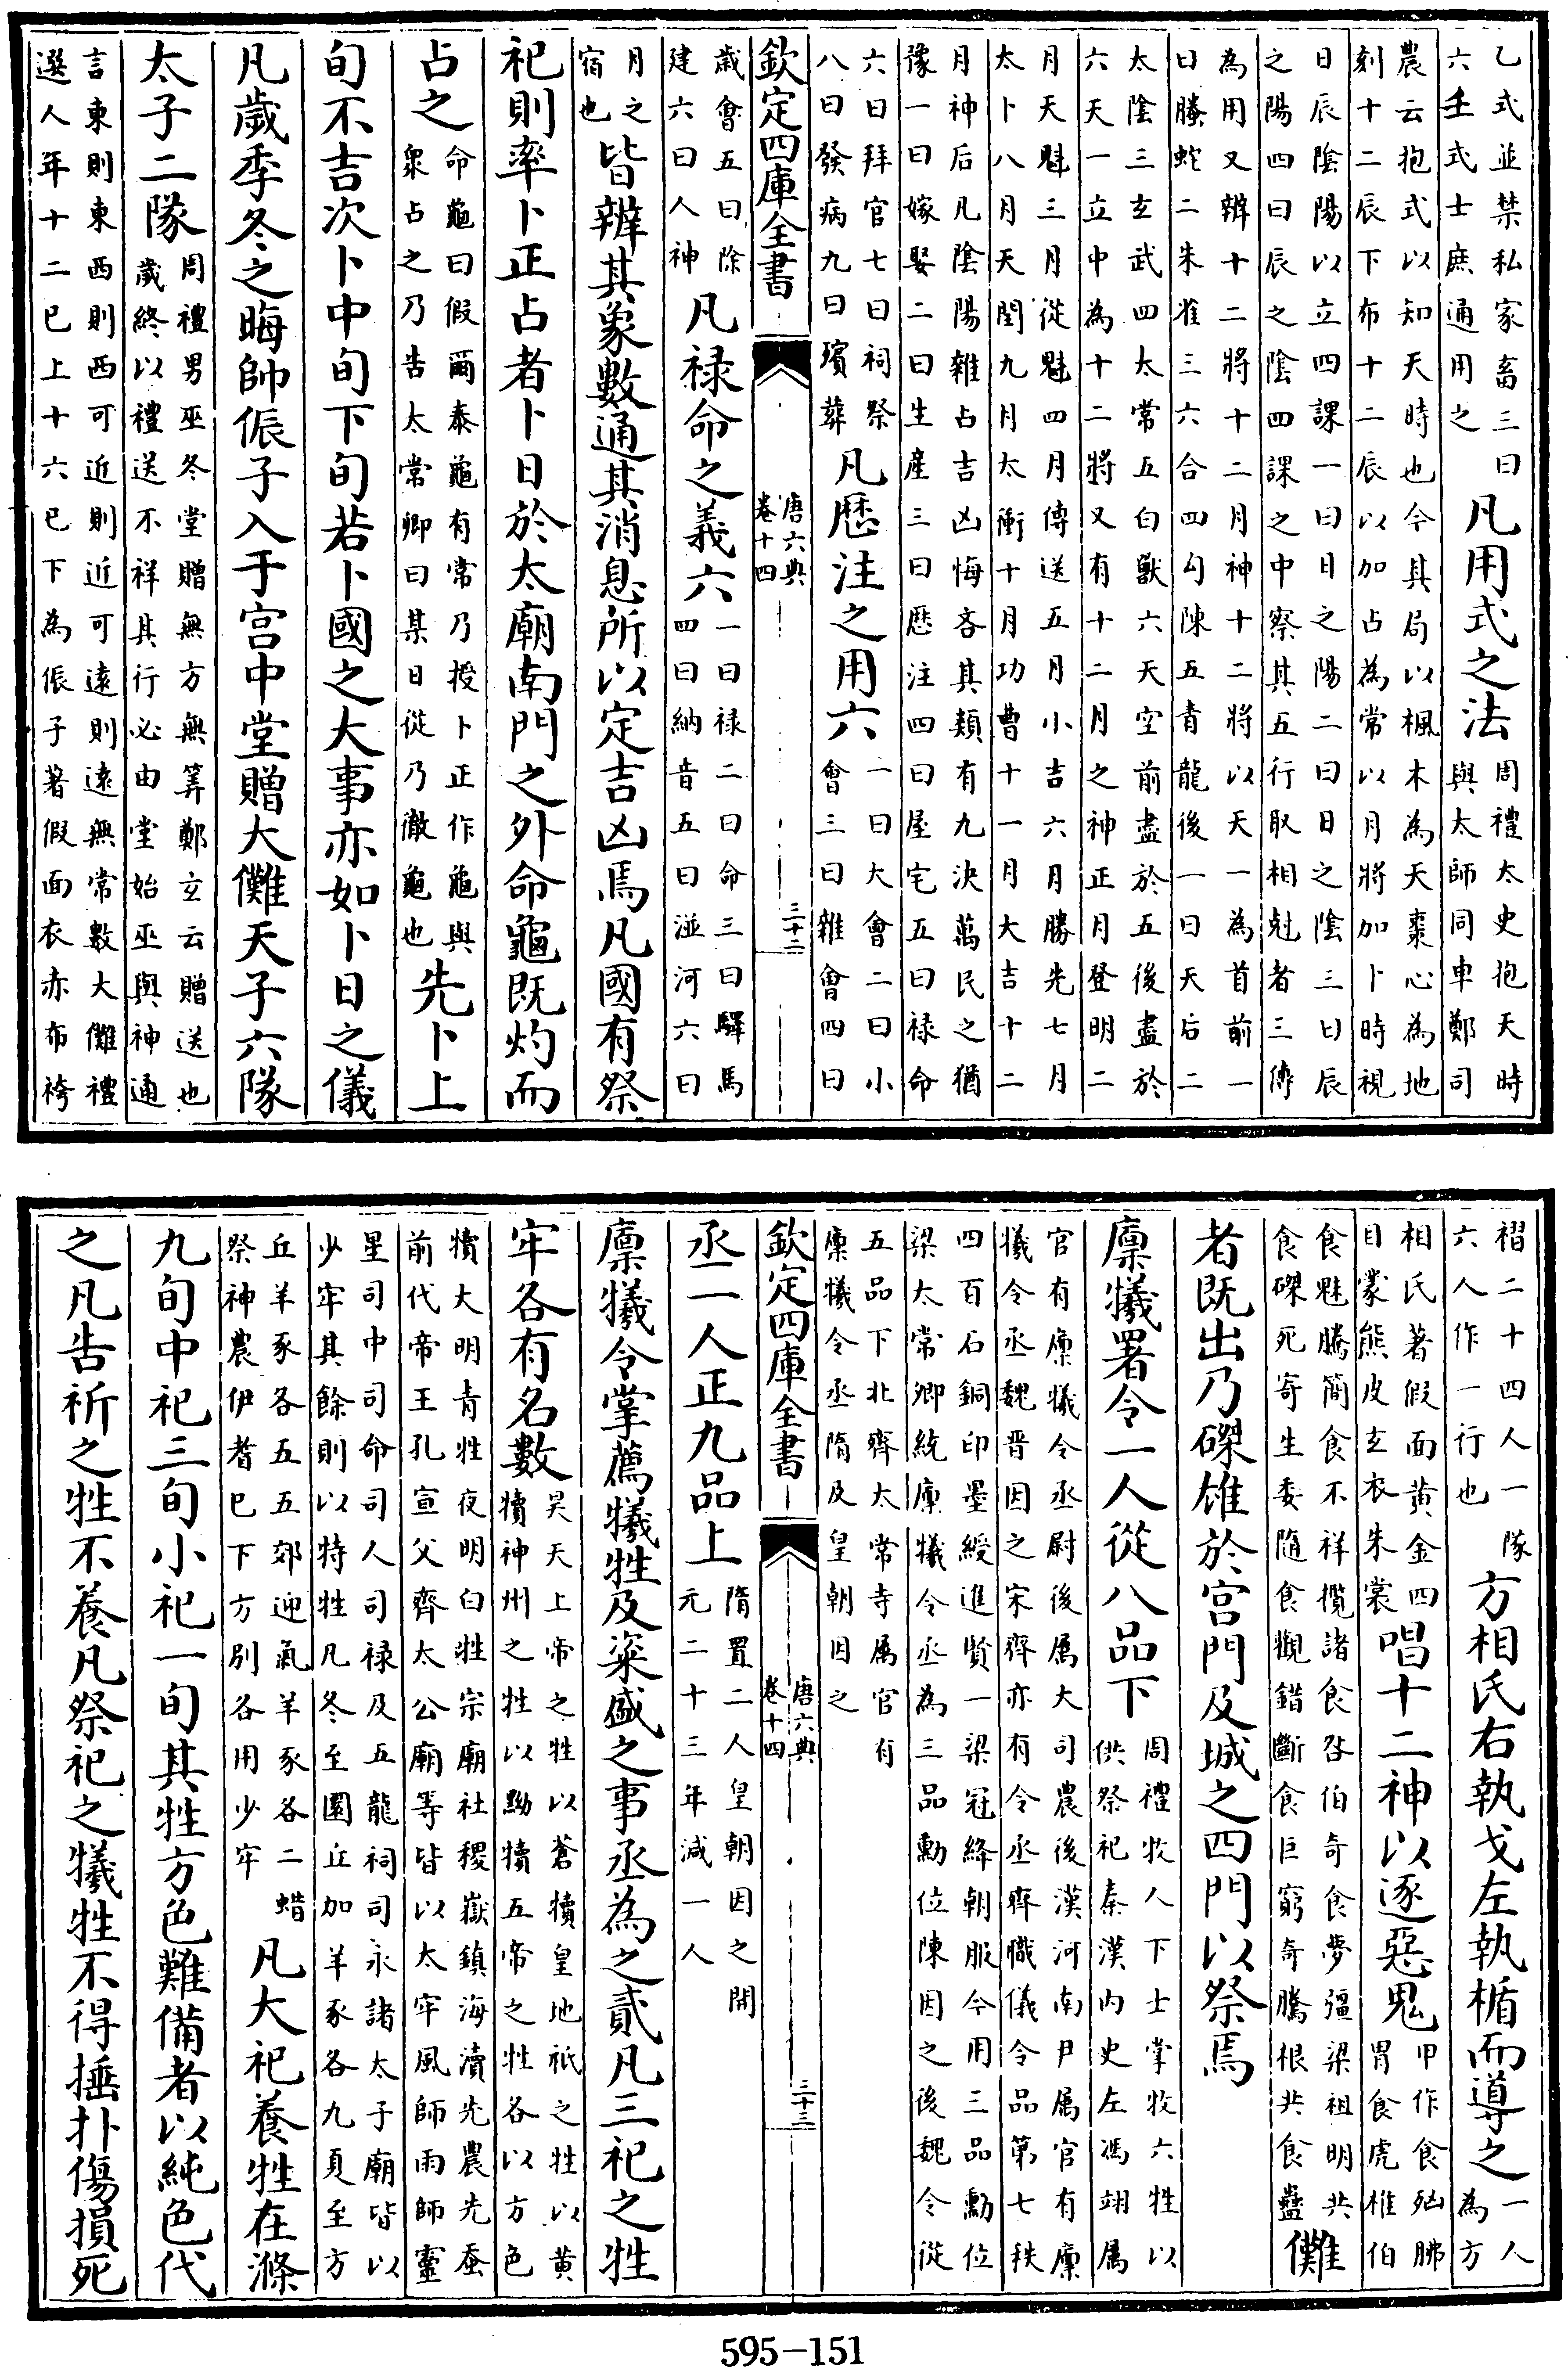 乙式並禁私家畜三曰
六壬式士庶通用之
凡用式之法
周禮太史抱天時
與太師同車鄭司
農云抱式以知天時也今其局以楓木為天棗心為地
刻十二辰下布十二辰以加占為常以月將加卜時視
日辰陰陽以立四課一曰日之陽二曰日之陰三曰辰
之陽四曰辰之陰四課之中察其五行取相尅者三傳
為用又辨十二將十二月神十二將以天一為首前一
曰螣蛇二朱雀三六合四勾陳五青龍後一曰天后二
太陰三玄武四太常五白獸六天空前盡於五後盡於
六天一立中為十二將又有十二月之神正月登明二
月天魁三月從魁四月傳送五月小吉六月勝先七月
太卜八月天罡九月太衝十月功曹十一月大吉十二
月神后凡陰陽雜占吉凶悔吝其類有九決萬民之猶
豫一曰嫁娶二曰生産三曰厯注四曰屋宅五曰禄命
六曰拜官七曰祠祭
八曰發病九曰殯葬
凡厯注之用六
一曰大會二曰小
會三曰雜會四曰
欽定四庫全書
唐六典
卷十四
三十二
歲會五曰除
建六曰人神
凡禄命之義六
一曰禄二曰命三曰驛馬
四曰納音五曰湴河六曰
月之
宿也
皆辨其象數通其消息所以定吉凶焉凡國有祭
祀則率卜正占者卜日於太廟南門之外命龜既灼而
占之
命龜曰假爾泰龜有常乃授卜正作龜與
衆占之乃告太常卿曰某日從乃徹龜也
先卜上
旬不吉次卜中旬下旬若卜國之大事亦如卜日之儀
凡歲季冬之晦帥侲子入于宫中堂贈大儺天子六隊
太子二隊
周禮男巫冬堂贈無方無筭鄭玄云贈送也
歲終以禮送不祥其行必由堂始巫與神通
言東則東西則西可近則近可逺則逺無常數大儺禮
選人年十二已上十六已下為侲子著假面衣赤布袴
褶二十四人一隊
六人作一行也
方相氏右執戈左執楯而導之
一人
為方
相氏著假面黄金四
目䝉熊皮玄衣朱裳
唱十二神以逐惡鬼
甲作食㐫胇
胃食虎椎伯
食魅騰簡食不祥攬諸食咎伯奇食夢彊梁祖明共
食磔死寄生委隨食觀錯斷食巨窮奇騰根共食蠱
儺
者既出乃磔雄於宫門及城之四門以祭焉
廪犧署令一人從八品下
周禮牧人下士掌牧六牲以
供祭祀秦漢内史左馮翊属
官有廪犧令丞尉後属大司農後漢河南尹属官有廪
犧令丞魏晋因之宋齊亦有令丞齊職儀令品第七秩
四百石銅印墨綬進賢一梁冠絳朝服今用三品勳位
梁太常卿統廪犧令丞為三品勳位陳因之後魏令從
五品下北齊太常寺属官有
廪犧令丞隋及皇朝因之
欽定四庫全書
唐六典
卷十四
三十三
丞一人正九品上
隋置二人皇朝因之開
元二十三年減一人
廪犧令掌薦犧牲及粢盛之事丞為之貳凡三祀之牲
牢各有名數
昊天上帝之牲以蒼犢皇地祇之牲以黄
犢神州之牲以黝犢五帝之牲各以方色
犢大明青牲夜明白牲宗廟社稷嶽鎮海瀆先農先蚕
前代帝王孔宣父齊太公廟等皆以太牢風師雨師靈
星司中司命司人司禄及五龍祠司永諸太子廟皆以
少牢其餘則以特牲凡冬至圜丘加羊豕各九夏至方
丘羊豕各五五郊迎氣羊豕各二蜡
祭神農伊耆已下方别各用少牢
凡大祀養牲在滌
九旬中祀三旬小祀一旬其牲方色難備者以純色代
之凡告祈之牲不養凡祭祀之犧牲不得捶扑傷損死
595-151